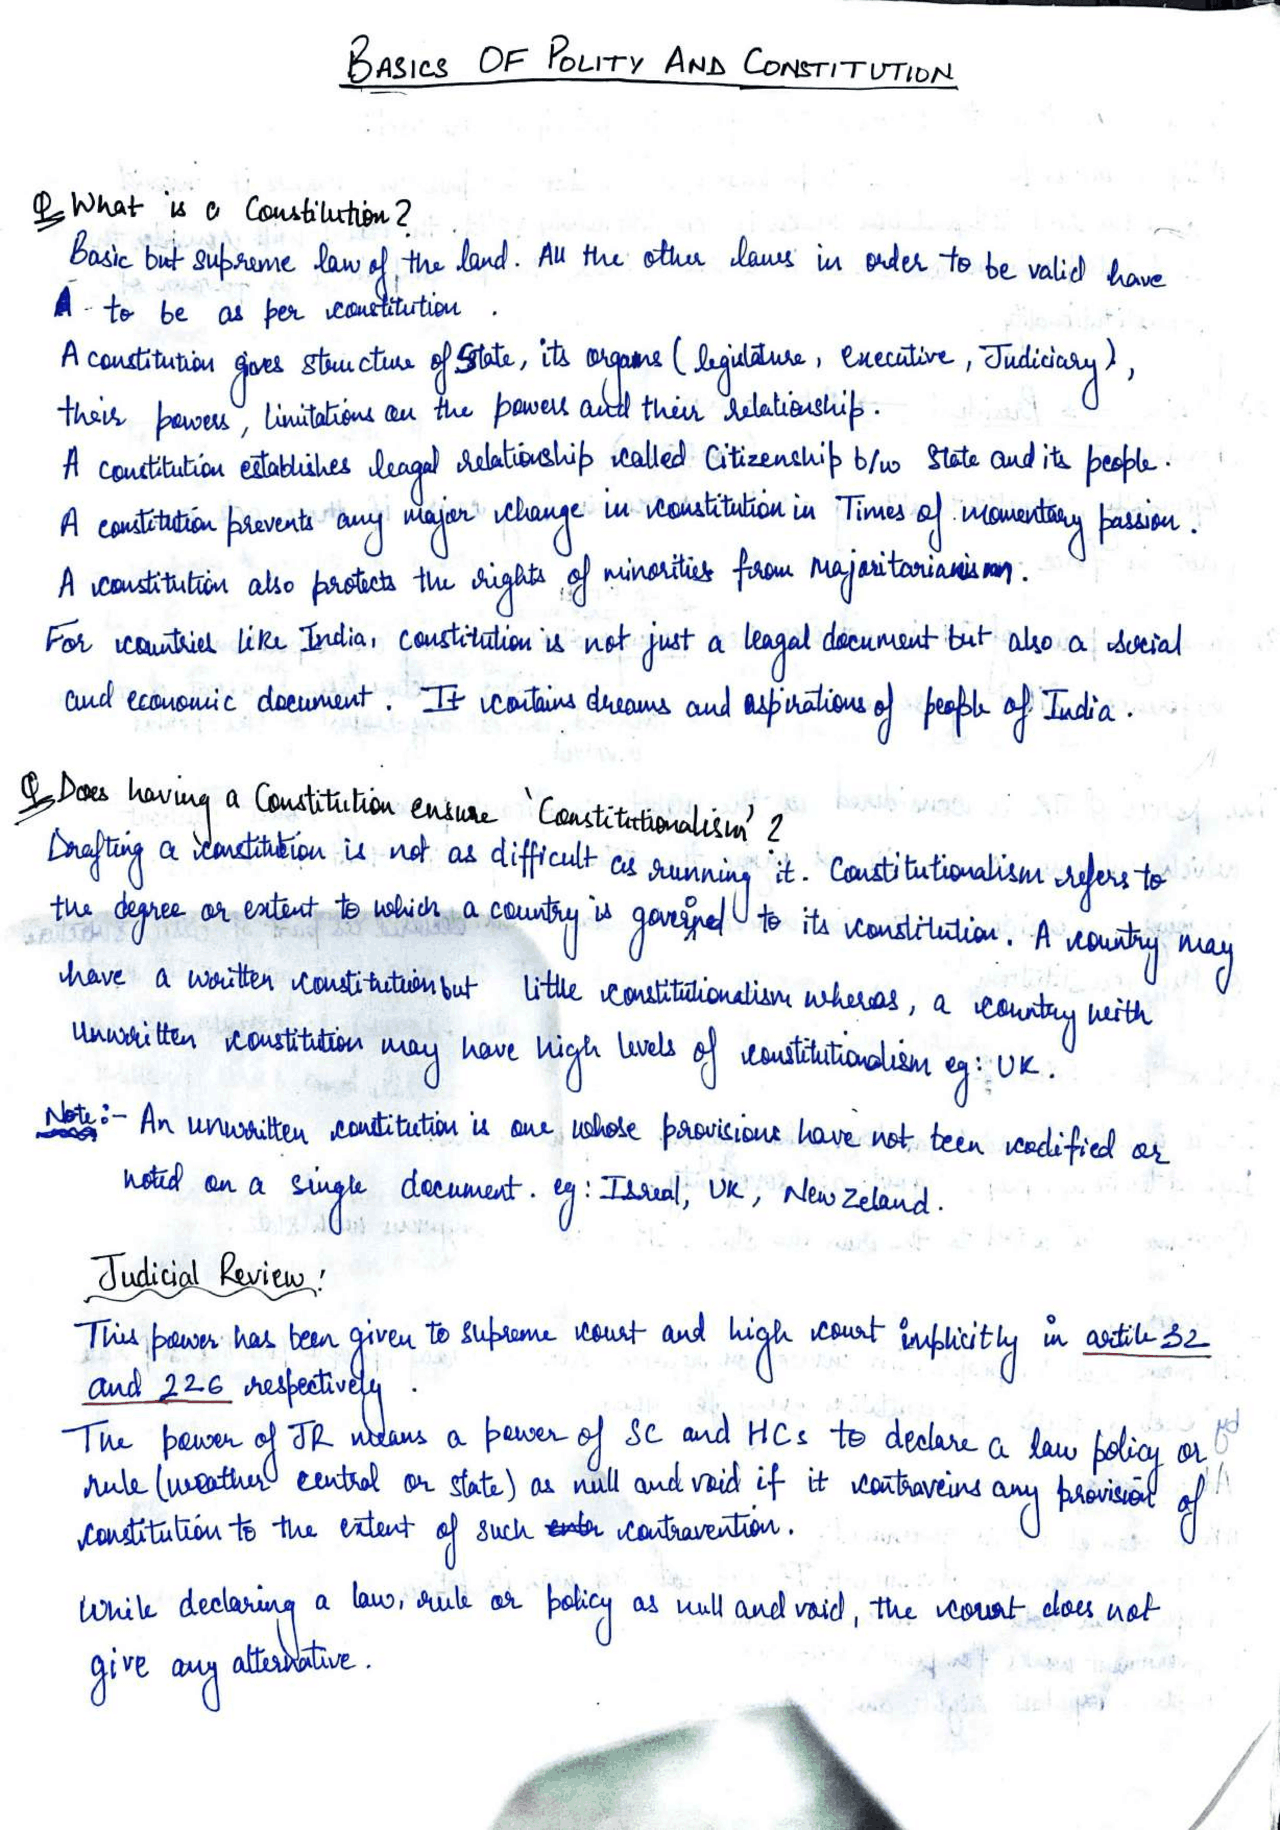 BASICS OF POLITY AND CONSTITUTION
Q What is a Constitution?
Basic but supreme law of the land. All the other laws in order to be valid have
to be as per constitution.
A constitution gives structure of State, its organs (legislature, executive, Judiciary),
their powers, limitations on the powers and their relationship.
A constitution establishes leagal relationship called Citizenship b/w State and its people.
A constitution prevents any major change in constitution in Times of momentary passion.
A constitution also protects the rights of minorities from Majoritarianism.
For countries like India, constitution is not just a leagal document but also a social
and economic document. It contains dreams and aspirations of people of India.
Q Does having a Constitution ensure 'Constitutionalism'?
Drafting a constitution is not as difficult as running it. Constitutionalism refers to
the degree or extent to which a country is governed to its constitution. A country may
have a written constitution but little constitutionalism wheras, a country with
unwritten constitution may have high levels of constitutionalism eg: UK.
Note:- An unwritten constitution is one whose provisions have not been codified or
noted on a single document. eg: Isreal, UK, New Zeland.
Judicial Review:
This power has been given to supreme court and high court implicitly in article 32
and 226 respectively.
The power of JR means a power of SC and HCs to declare a law policy or
rule (weather central or state) as null and void if it contraveins any provision of
constitution to the extent of such contravention.
While declaring a law, rule or policy as null and void, the court does not
give any alternative.